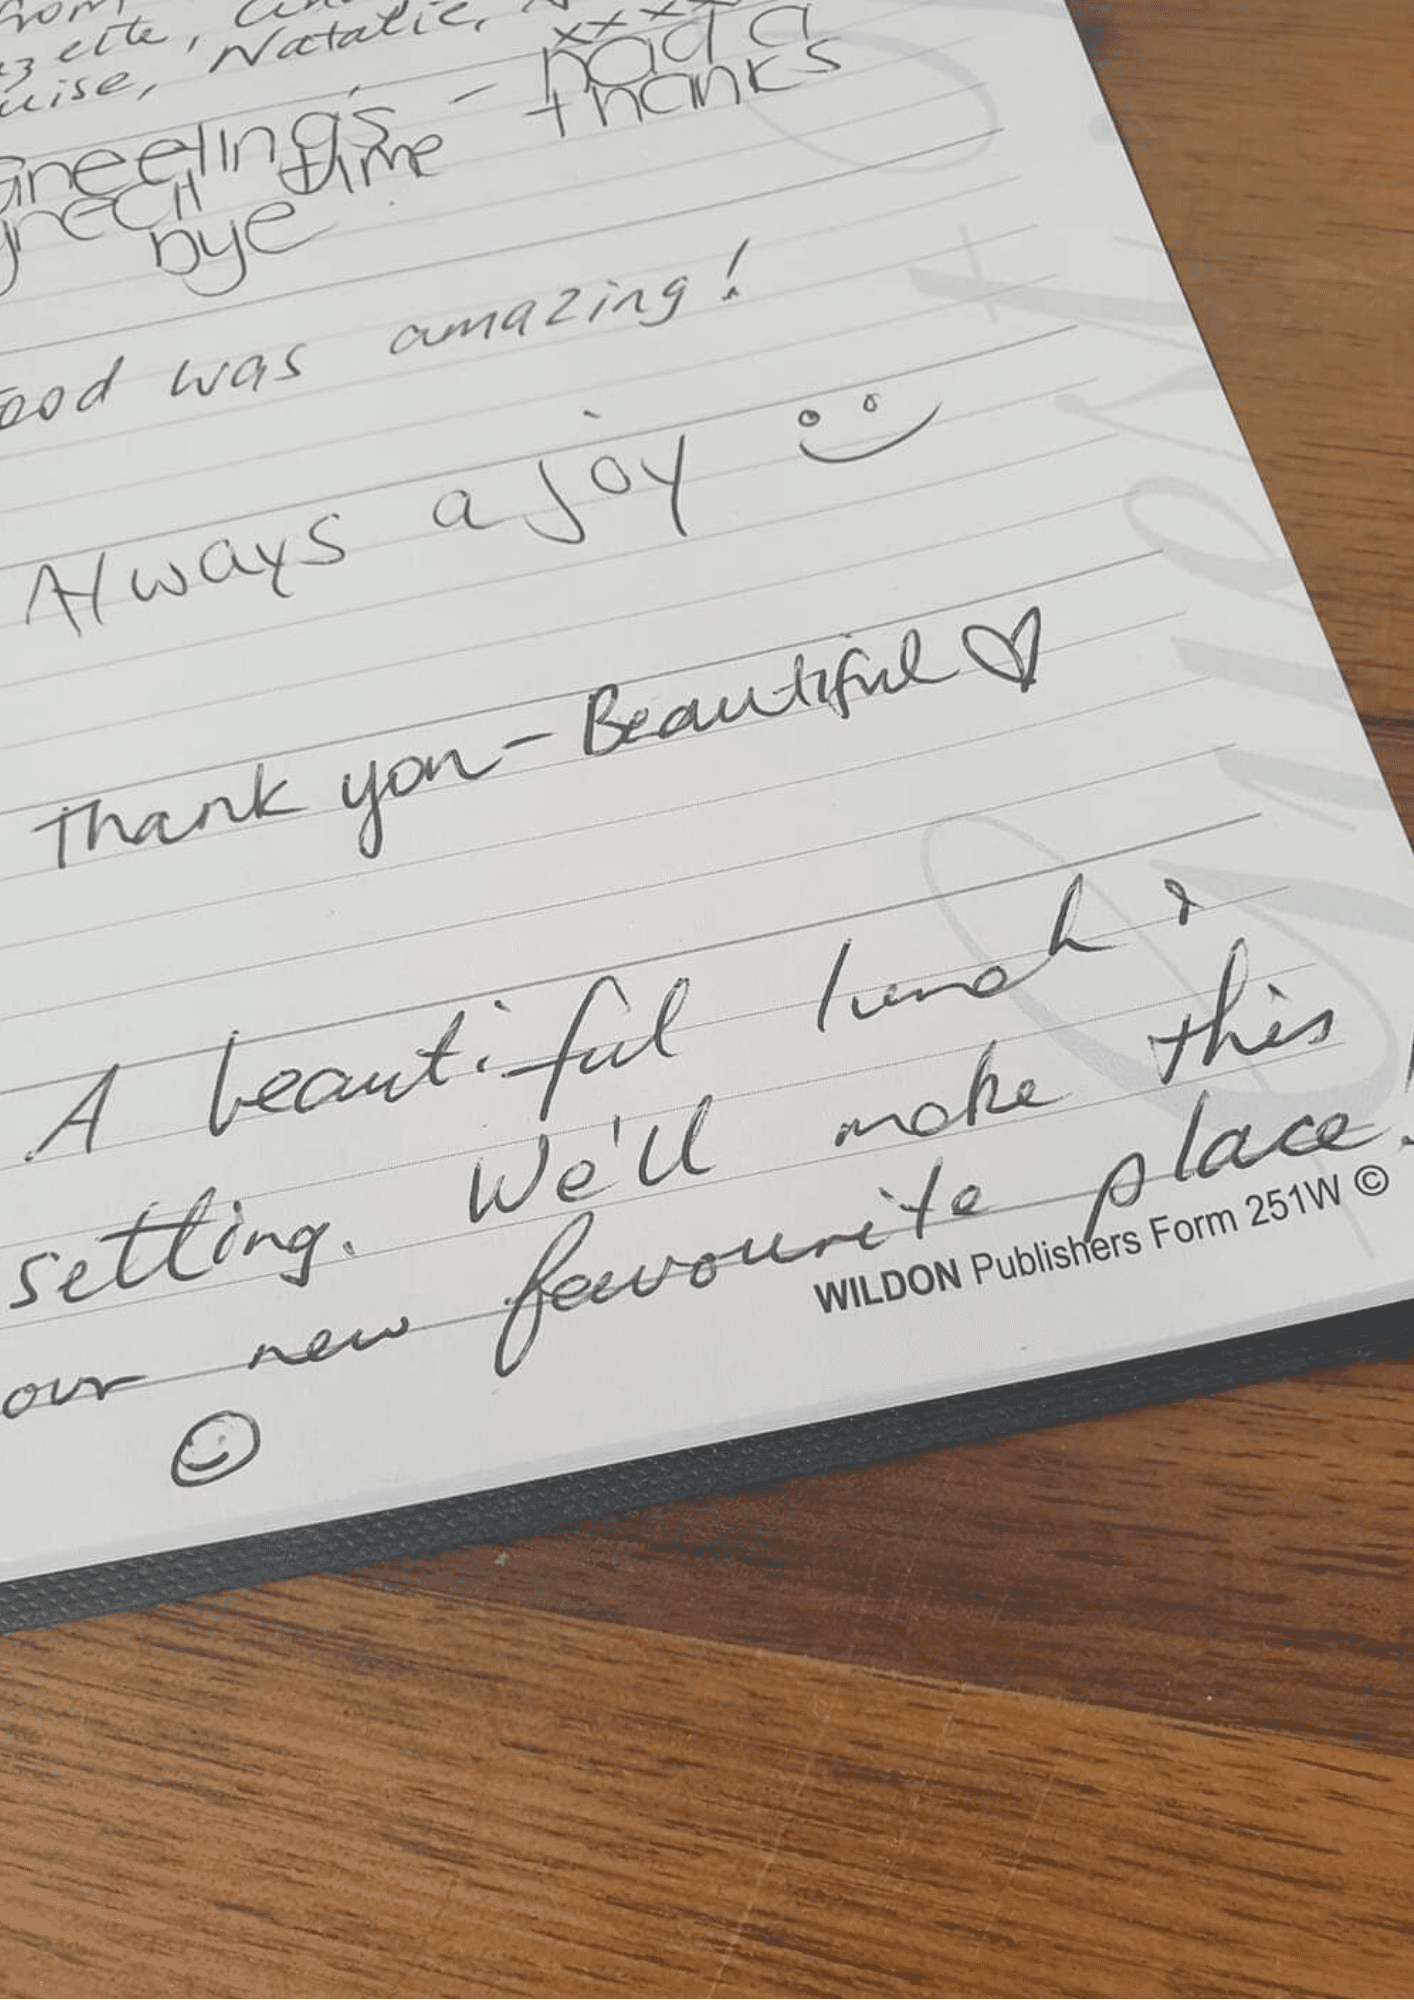 from
uise, Natalie,
xxxx
Greetings - had a
great time thanks
bye
ood was amazing!
Always a joy
Thank you - Beautiful ♡
A beautiful lunch &
setting. We'll make this
our new favourite place!
WILDON Publishers Form 251W ©